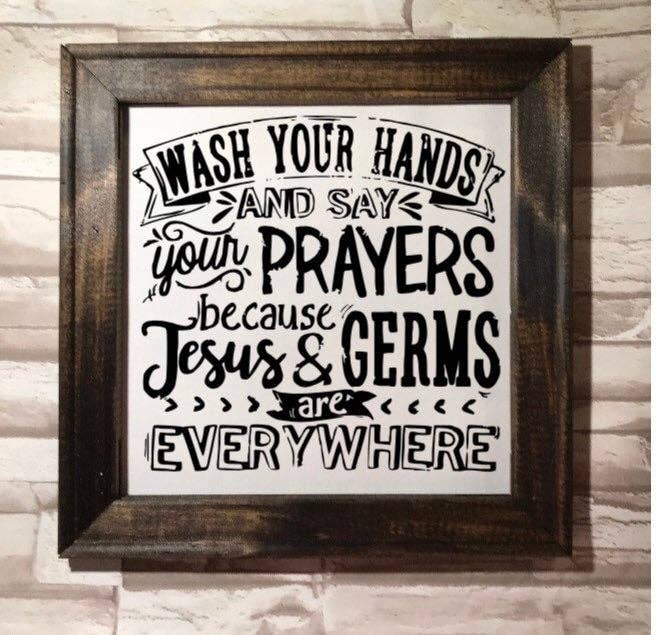 WASH YOUR HANDS
AND SAY
your PRAYERS
because
Jesus & GERMS
are
EVERYWHERE